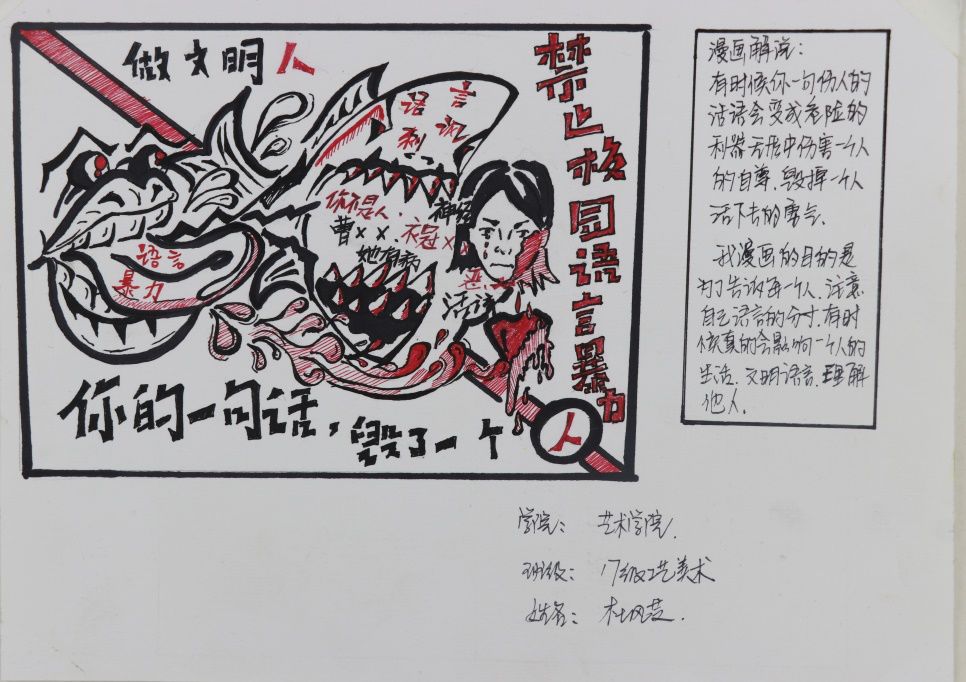 做文明人
禁止校园语言暴力
语言
利
语言
暴力
你不是人.
神经
曹××.衣冠××
她有病
恶
活该
你的一句话,毁了一个人
漫画解说:
有时候你一句伤人的
话语会变成危险的
利器无形中伤害一个人
的自尊、毁掉一个人
活下去的勇气.
我漫画的目的是
为了告诉每一个人.注意
自己语言的分寸.有时
候真的会影响一个人的
生活.文明语言.理解
他人.
学院: 艺术学院.
班级: 17级工艺美术
姓名: 杜风芸.